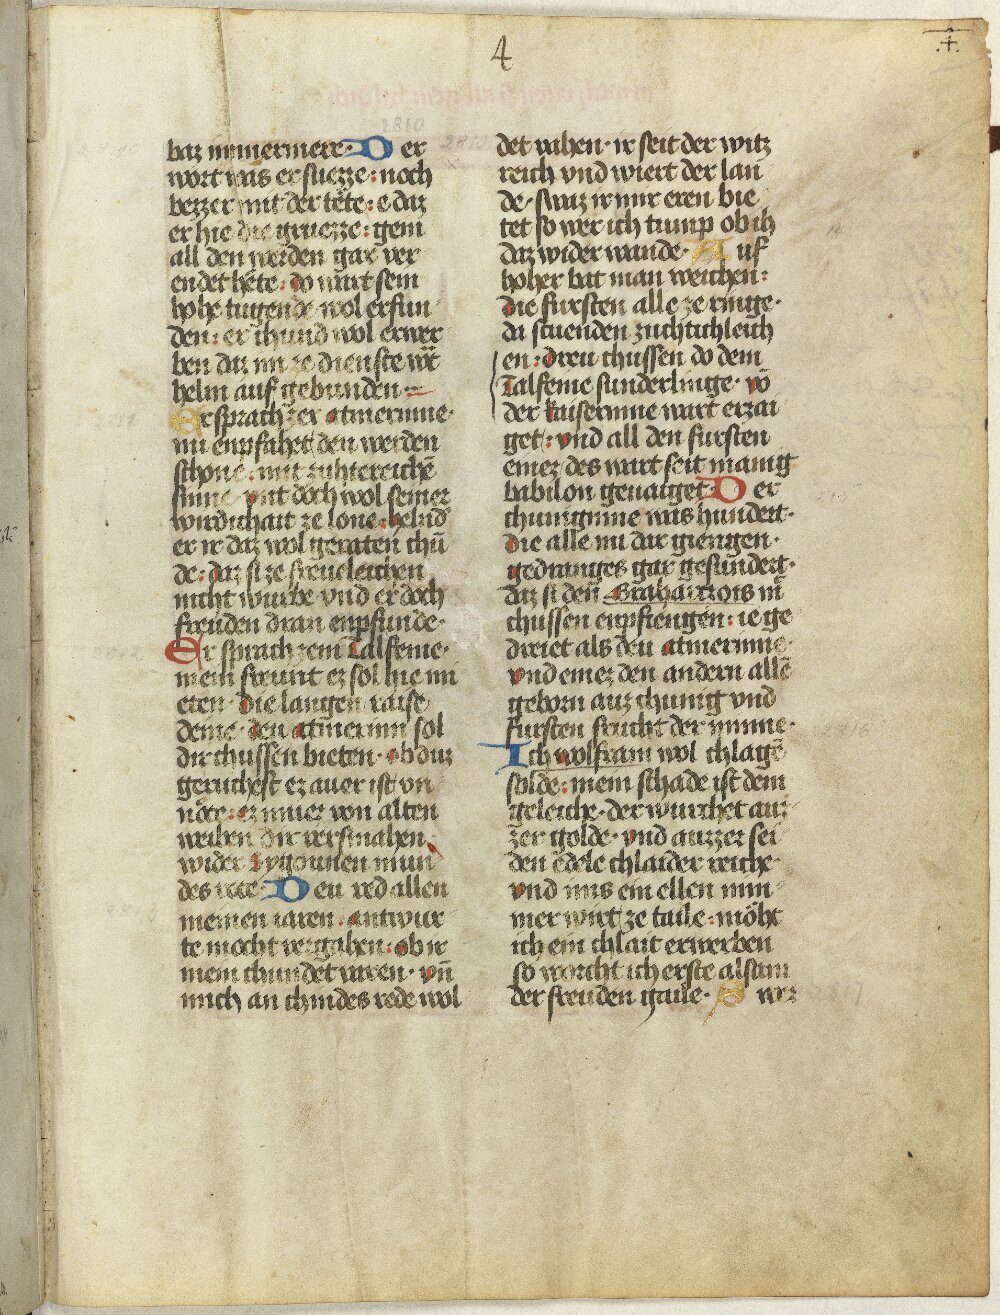 4
baz nimmermere · D er
wort was er suezze : noch
bezzer mit der tete : e daz
er hie die gruezze : gein
all den werden gar ver
endet hete · do wart sein
hohe tugende wol erfun
den : er chund wol erwer
ben daz im ze dienste wt
helm auf gebunden
Er sprach zer atmerinne ·
nu enpfahet den werden
schone : mit zuhtereichē
sinne · vnt doch wol seiner
wirdichait ze lone · helnd
er ir daz wol geraten chū
de : daz si ze freueleichen
nicht wurbe vnd er doch
freuden dran enpfunde ·
Er sprach zem Talfeine ·
mein freunt ez sol hie mi
eren · die langen raise
deine · den atmerinn sol
dir chussen bieten · ob duz
geruchest ez auer ist vn
note : ez muez von alten
weiben dir versmahen
wider Sygounen mun
des rote · D eu red allen
meinen iaren · antwur
te mocht vergahen : ob ir
mein chundet varen · vn̄
mich an chindes rede wol
det vahen · ir seit der witz
reich vnd wiert der lan
de · swaz ir mir eren bie
tet so wer ich tump ob ih
daz wider wande · A uf
hoher bat man weichen :
die fursten alle ze ringe ·
da stuenden zuchtichleich
en : dreu chussen do dem
Talfeine sunderlinge · vō
der kaiserinne wart erzai
get : vnd all den fursten
einez des wart seit manig
babilon genaiget · D er
chuniginne was hundert ·
die alle nu dar giengen ·
gedranges gar gesundert ·
daz si den Grahartzois mī
chussen enpfiengen : ie ge
dreiet als deu atmerinne ·
vnd einez den andern allē
geborn auz chunig vnd
fursten frucht der minne ·
Ich wolfram wol chlagē
solde : mein schade ist dem
geleiche · der wurchet auz
zer golde · vnd auzzer sei
den edele chlaider reiche ·
vnd ims ein ellen nim
mer wirt ze taile : möht
ich ein chlait erwerben
so worcht ich erste alsam
der freuden gaile · S wer